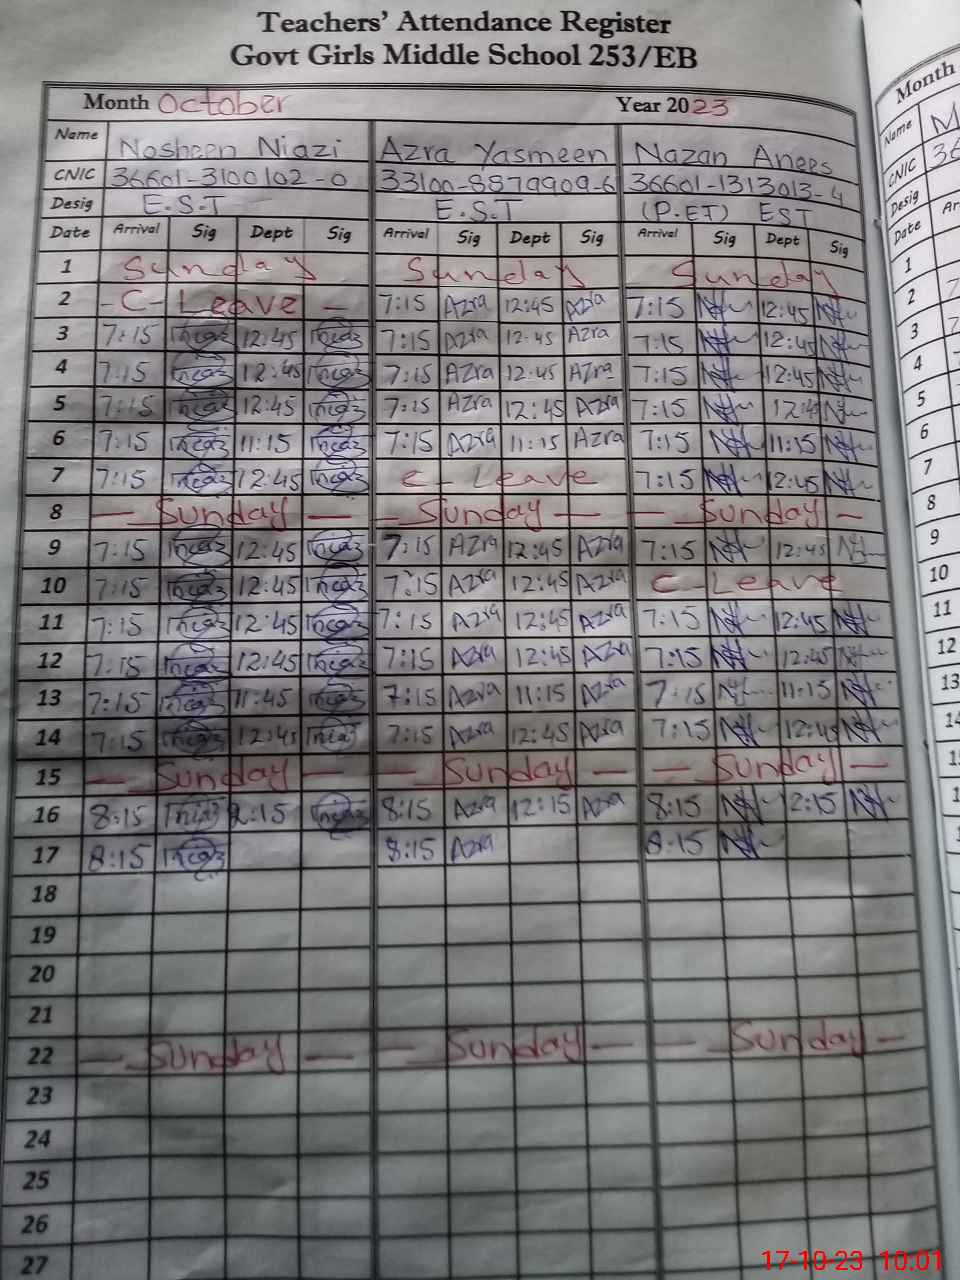 Teachers' Attendance Register
Govt Girls Middle School 253/EB
Month October Year 2023
Name Nosheen Niazi Azra Yasmeen Nazan Anees
CNIC 36601-3100102-0 33100-8879909-6 36601-1313013-4
Desig E.S.T E.S.T (P.ET) EST
Date Arrival Sig Dept Sig Arrival Sig Dept Sig Arrival Sig Dept Sig
1 Sunday Sunday Sunday
2 - C - Leave - 7:15 Azra 12:45 Azra 7:15 12:45
3 7:15 12:45 7:15 Azra 12:45 Azra 7:15 12:45
4 7:15 12:45 7:15 Azra 12:45 Azra 7:15 12:45
5 7:15 12:45 7:15 Azra 12:45 Azra 7:15 12:45
6 7:15 11:15 7:15 Azra 11:15 Azra 7:15 11:15
7 7:15 12:45 C - Leave 7:15 12:45
8 — Sunday — — Sunday — — Sunday —
9 7:15 12:45 7:15 Azra 12:45 Azra 7:15 12:45
10 7:15 12:45 7:15 Azra 12:45 Azra C - Leave
11 7:15 12:45 7:15 Azra 12:45 Azra 7:15 12:45
12 7:15 12:45 7:15 Azra 12:45 Azra 7:15 12:45
13 7:15 11:45 7:15 Azra 11:15 Azra 7:15 11:15
14 7:15 12:45 7:15 Azra 12:45 Azra 7:15 12:45
15 — Sunday — — Sunday — — Sunday —
16 8:15 2:15 8:15 Azra 12:15 Azra 8:15 2:15
17 8:15 8:15 Azra 8:15
18
19
20
21
22 — Sunday — — Sunday — — Sunday —
23
24
25
26
27
Month
Name M
CNIC 36
Desig
Date Ar
1
2 7
3 7
4
5
6
7
8
9
10
11
12
13
17-10-23 10:01